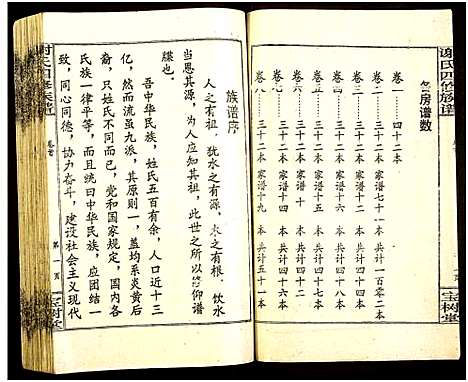 谢氏四修族谱
各房谱数
卷一 四十二本
卷二 三十二本 家谱七十一本 共计一百零二本
卷三 三十二本 家谱十四本 共计四十六本
卷四 三十二本 家谱十二本 共计四十四本
卷五 三十二本 家谱十六本 共计四十八本
卷六 三十二本 家谱十二本 共计四十四本
卷七 三十二本 家谱十四本 共计四十六本
卷八 三十二本 家谱十九本 共计五十一本
宝树堂
族谱序
人之有祖，犹水之有源，木之有根，饮水
当思其源，为人应知其祖，此世之所以修仰谱
牒也。
吾中华民族，姓氏五百有余，人口近十三
亿，然而流虽九派，其原则一，盖均系炎黄后
裔，只姓氏不同而已，党和国家规定，国内各
氏族一律平等，而且统曰中华民族，应团结一
致，同心同德，协力奋斗，建设社会主义现代
谢氏四修族谱
卷首
第一页
宝树堂